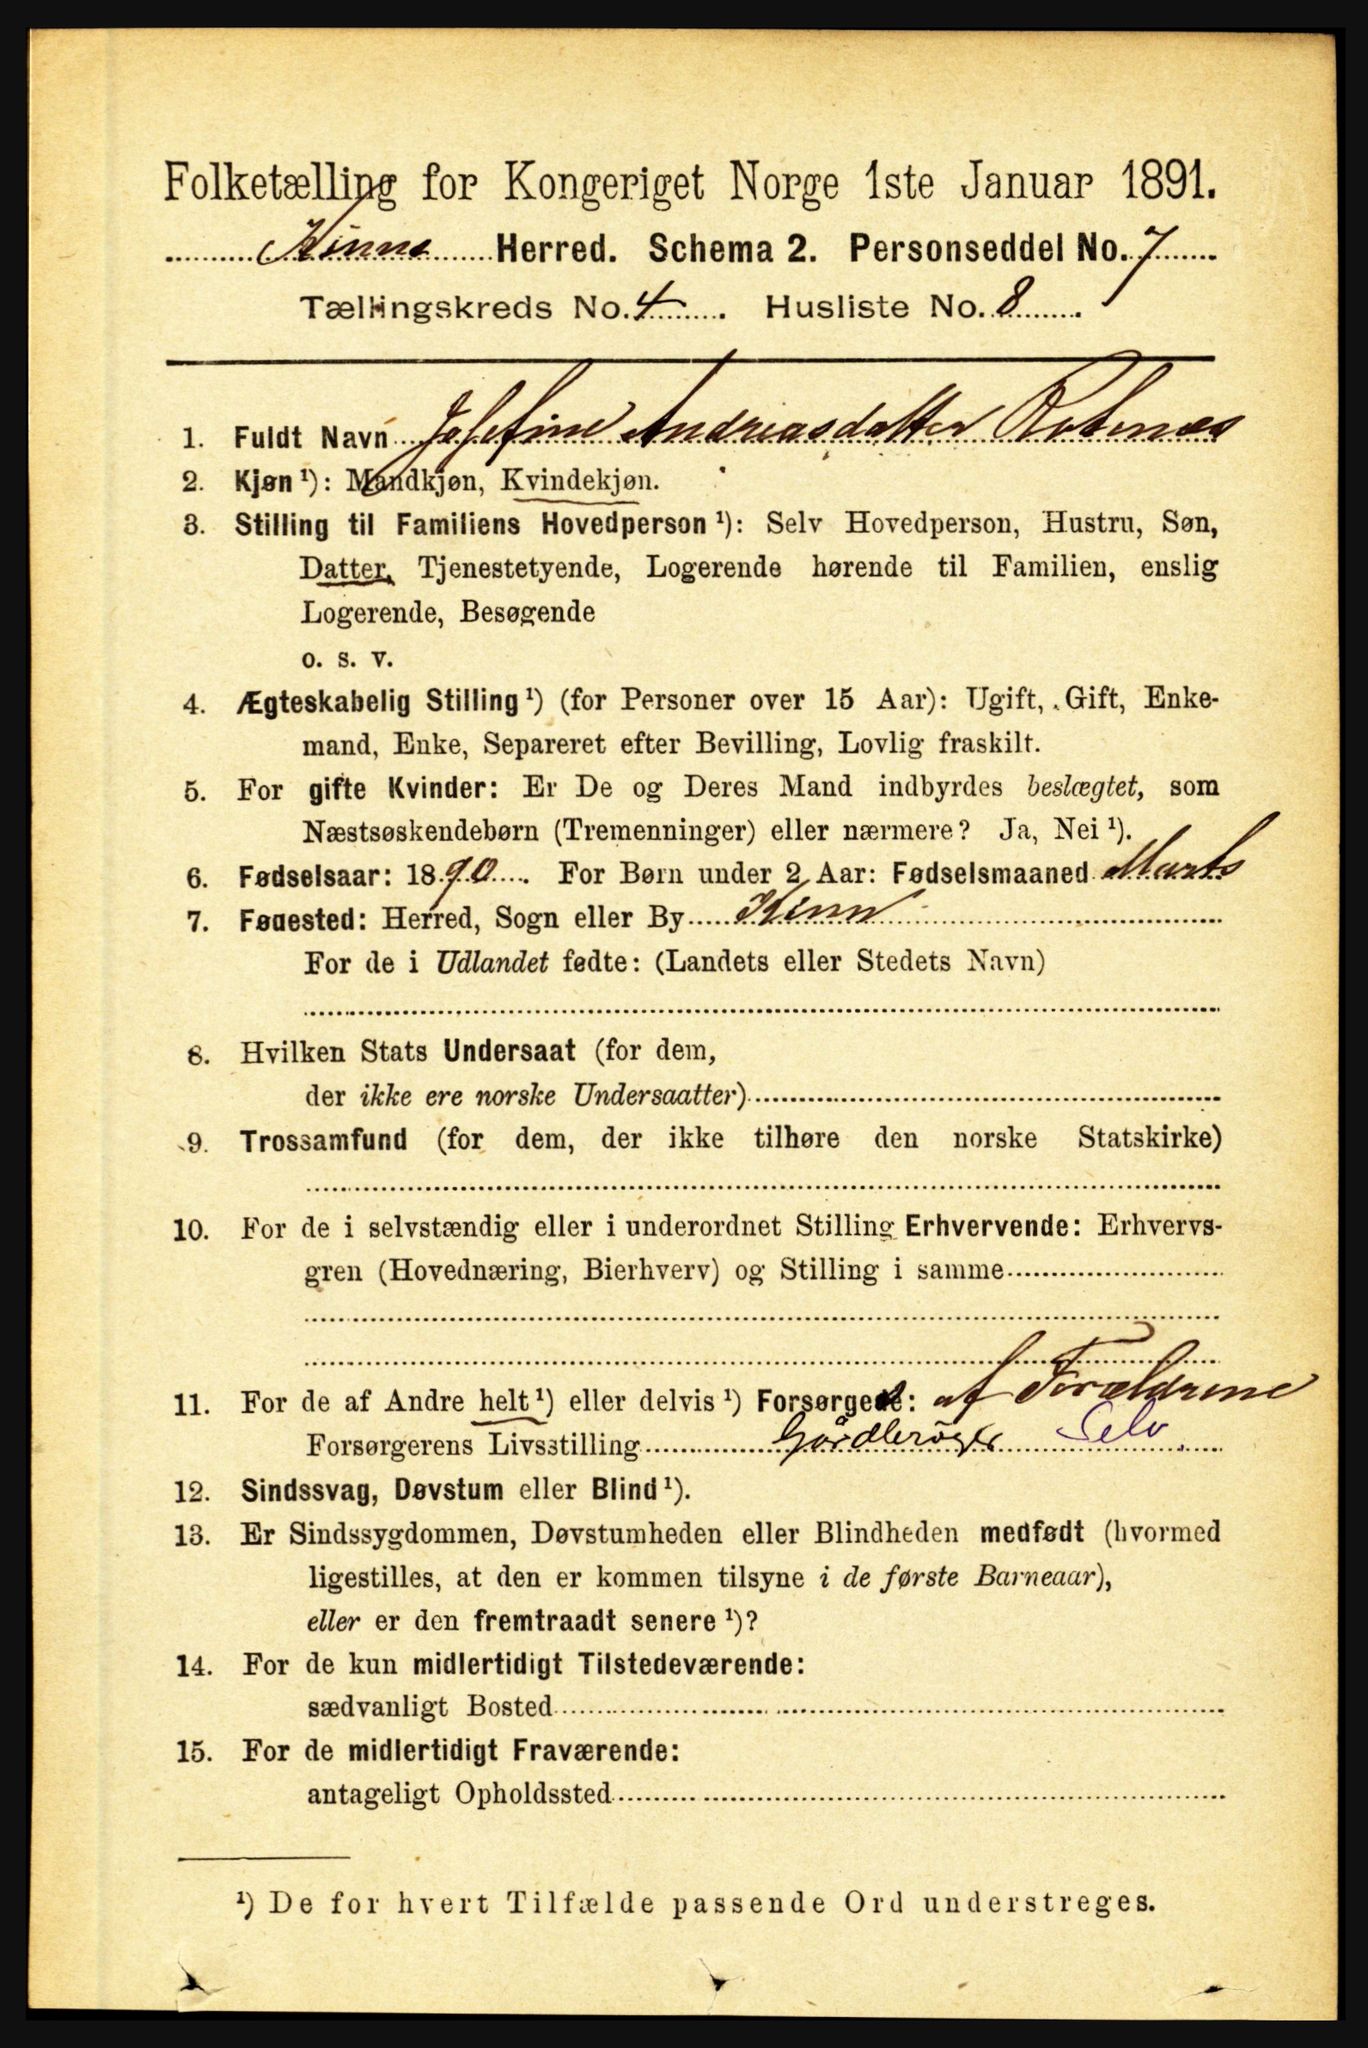 Folketælling for Kongeriget Norge 1ste Januar 1891.
Kinn Herred. Schema 2. Personseddel No. 7
Tællingskreds No. 4. Husliste No. 8.
1. Fuldt Navn Josefine Andreasdatter
2. Kjøn ¹): Mandkjøn, Kvindekjøn.
3. Stilling til Familiens Hovedperson ¹): Selv Hovedperson, Hustru, Søn,
Datter, Tjenestetyende, Logerende hørende til Familien, enslig
Logerende, Besøgende
o. s. v.
4. Ægteskabelig Stilling ¹) (for Personer over 15 Aar): Ugift, Gift, Enke-
mand, Enke, Separeret efter Bevilling, Lovlig fraskilt.
5. For gifte Kvinder: Er De og Deres Mand indbyrdes beslægtet, som
Næstsøskendebørn (Tremenninger) eller nærmere? Ja, Nei ¹).
6. Fødselsaar: 1890. For Børn under 2 Aar: Fødselsmaaned Marts
7. Fødested: Herred, Sogn eller By Kinn
For de i Udlandet fødte: (Landets eller Stedets Navn)
8. Hvilken Stats Undersaat (for dem,
der ikke ere norske Undersaatter)
9. Trossamfund (for dem, der ikke tilhøre den norske Statskirke)
10. For de i selvstændig eller i underordnet Stilling Erhvervende: Erhvervs-
gren (Hovednæring, Bierhverv) og Stilling i samme
11. For de af Andre helt ¹) eller delvis ¹) Forsørgede: af Forældrene
Forsørgerens Livsstilling Gårdbruger Selv.
12. Sindssvag, Døvstum eller Blind ¹).
13. Er Sindssygdommen, Døvstumheden eller Blindheden medfødt (hvormed
ligestilles, at den er kommen tilsyne i de første Barneaar),
eller er den fremtraadt senere ¹)?
14. For de kun midlertidigt Tilstedeværende:
sædvanligt Bosted
15. For de midlertidigt Fraværende:
antageligt Opholdssted
¹) De for hvert Tilfælde passende Ord understreges.